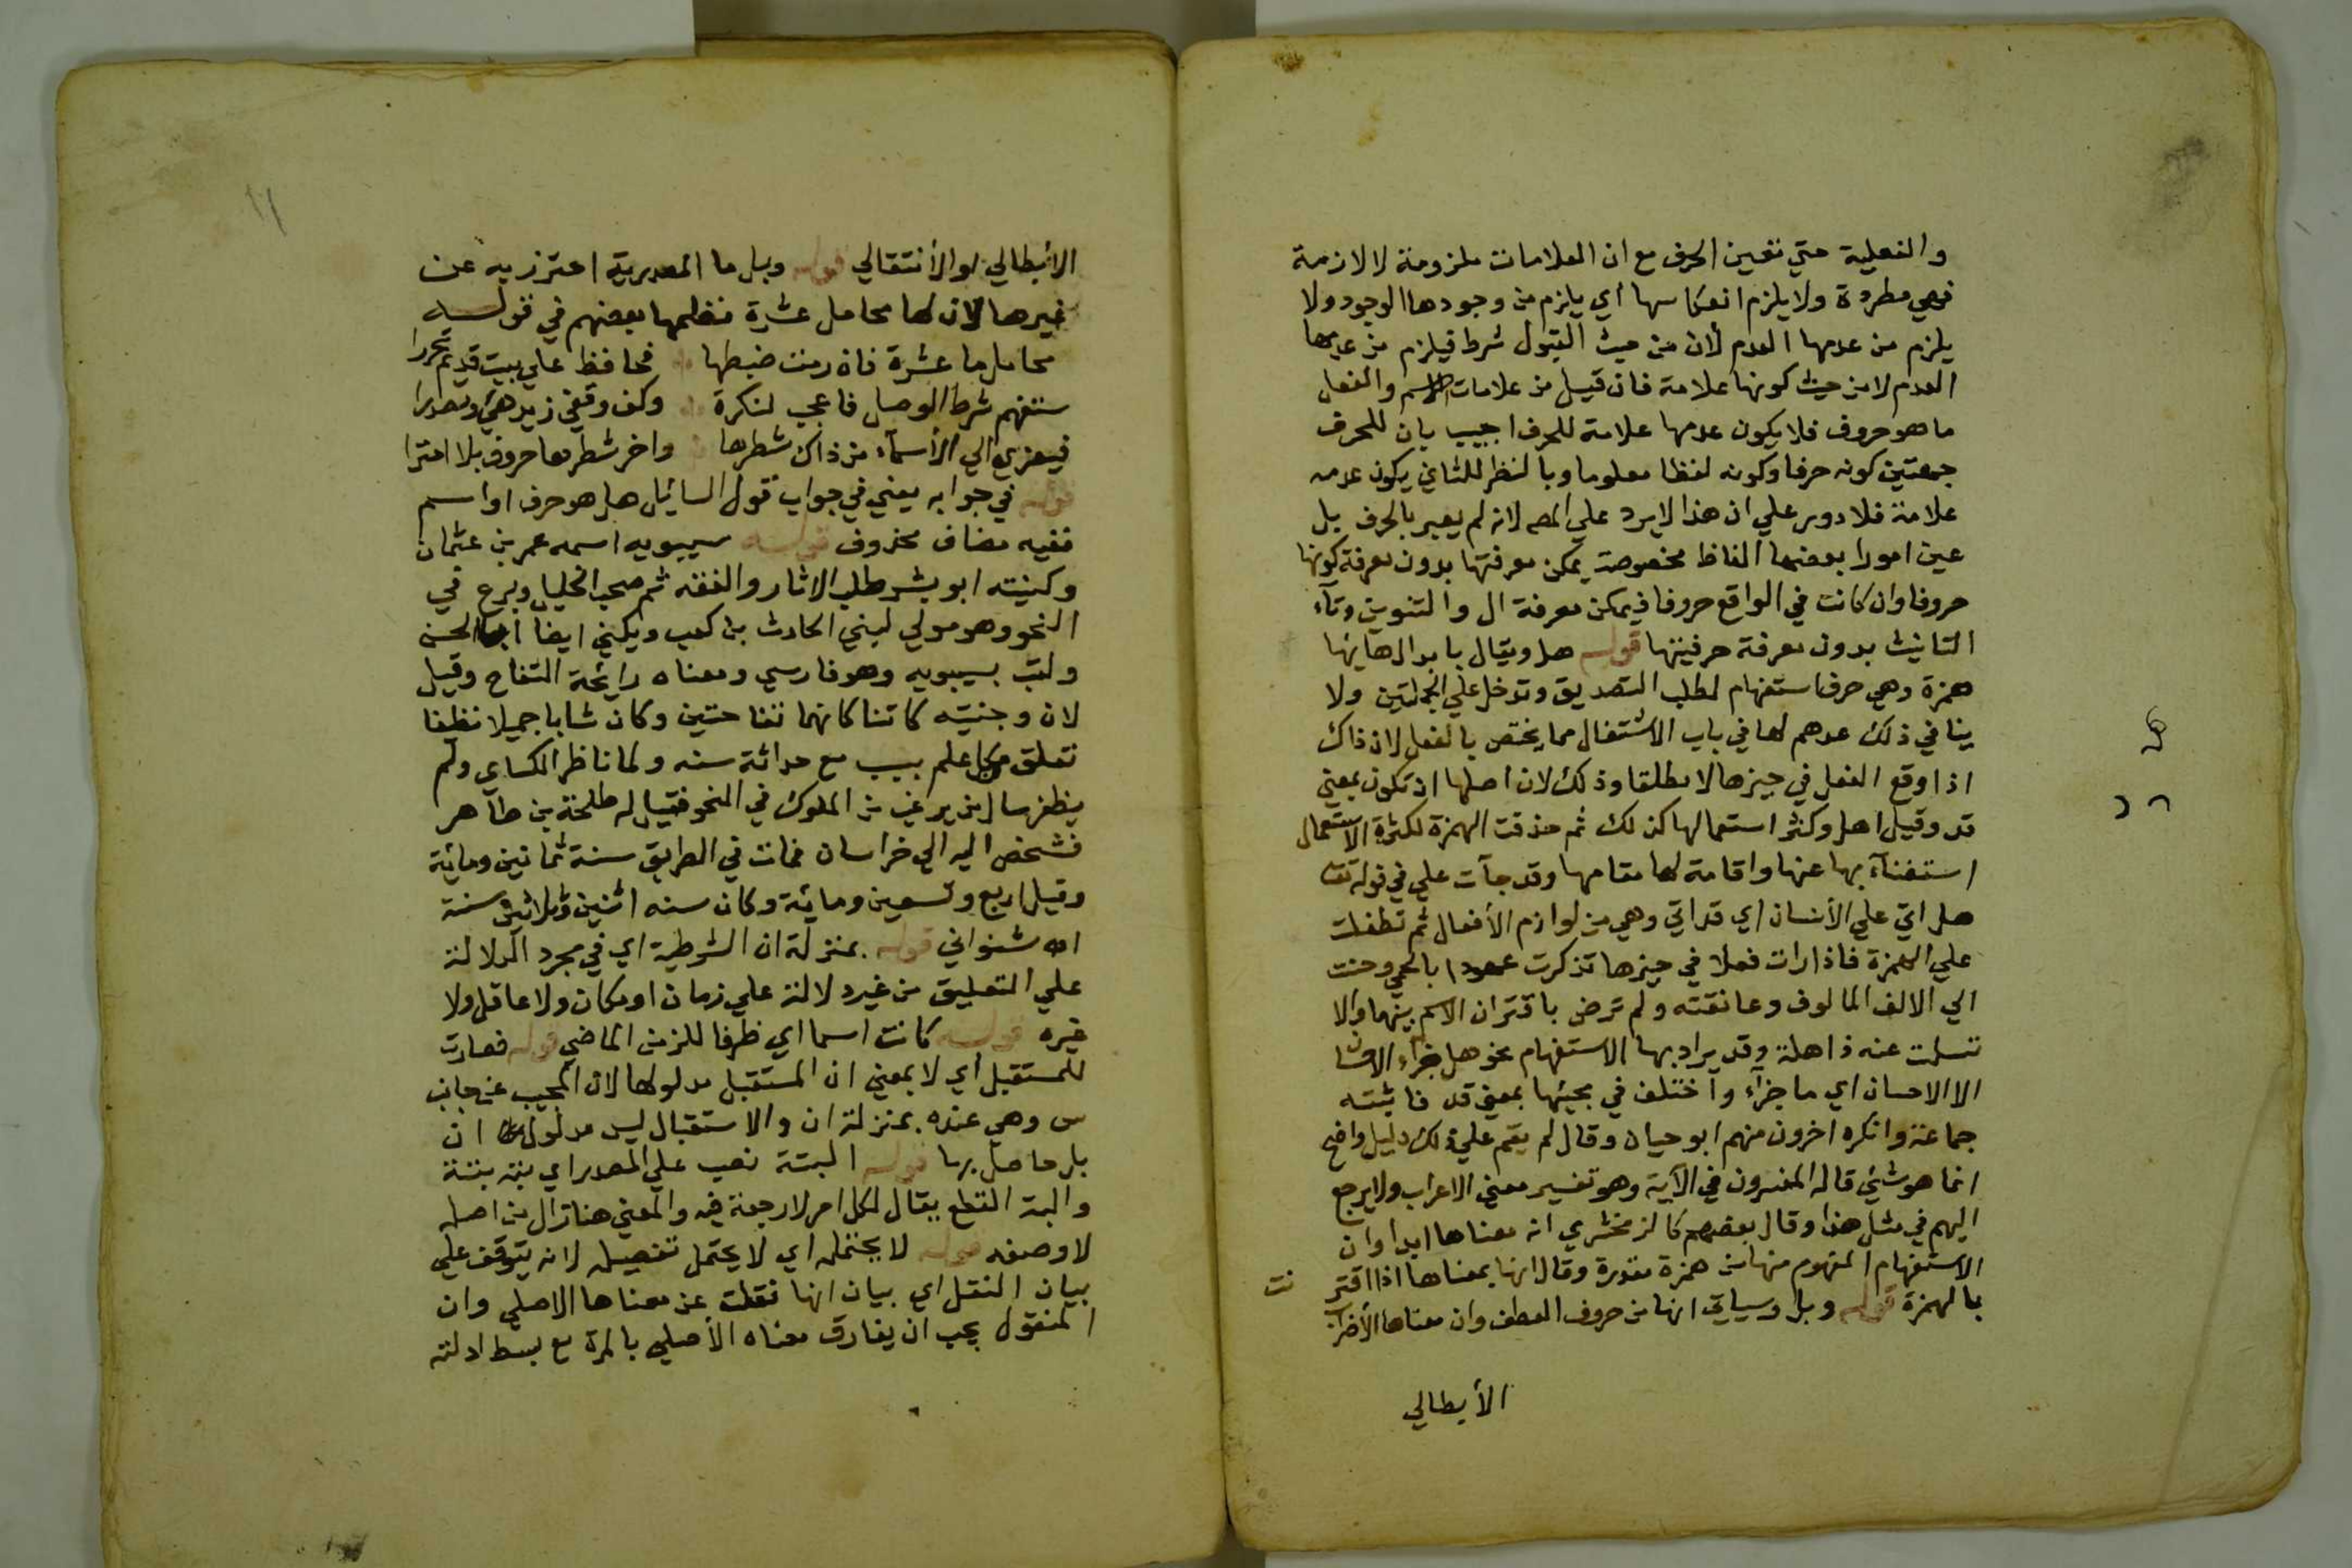 والفعلية حتي تعين الحرف مع ان العلامات ملزومة لا لازمة
فهي مطردة ولا يلزم انعكاسها أي يلزم من وجودها الوجود ولا
يلزم من عدمها العدم لأن من حيث القبول شرط فيلزم من عدمها
العدم لا من حيث كونها علامة فان قيل من علامات الاسم والفعل
ما هو حروف فلا يكون عدمها علامة للحرف اجيب بان للحرف
جهتين كونه حرفا وكونه لفظا معلوما وبالنظر للثاني يكون عدمه
علامة فلا دور علي ان هذا لا يرد علي المص لانه لم يعبر بالحرف بل
عين امورا بعضها الفاظ مخصوصة يمكن معرفتها بدون معرفة كونها
حروفا وان كانت في الواقع حروفا فيمكن معرفة ال والتنوين وتآء
التانيث بدون معرفة حرفيتها قوله هل ويقال بابدال هايها
همزة وهي حرف استفهام لطلب التصديق وتدخل علي الجملتين ولا
ينافي ذلك عدهم لها في باب الاشتغال مما يختص بالفعل لان ذاك
اذا وقع الفعل في حيزها لا مطلقا وذلك لان اصلها ان تكون بمعني
قد وقيل اهل وكثر استعمالها كذلك ثم حذفت الهمزة لكثرة الاستعمال
استغنآء بها عنها واقامة لها مقامها وقد جآت علي في قوله تعا
هل اتي علي الأنسان اي قد اتي وهي من لوازم الأفعال ثم تطفلت
علي الهمزة فاذا رات فعلا في حيزها تذكرت عهودا بالحمي وحنت
الي الالف المالوف وعانقته ولم ترض باقتران الاسم بينهما والا
تسلت عنه ذاهلة وقد يراد بها الاستفهام نحو هل جزاء الاحسان
الا الاحسان اي ما جزآء وآختلف في مجيئها بمعني قد فاثبته
جماعة وانكره اخرون منهم ابو حيان وقال لم يقم علي ذلك دليل واضح
انما هو شئ قاله المفسرون في الآية وهو تفسير معني الاعراب ولا يرجع
اليهم في مثل هذا وقال بعضهم كالزمخشري انه معناها ابدا وان
الاستفهام المفهوم منها من همزة مقدرة وقال انها بمعناها اذا اقترنت
بالهمزة قوله وبل وسياتي انها من حروف العطف وان معناها الأضراب
الأبطالي
الأبطالي او الأنتقالي قوله وبل ما المصدرية احترز به عن
غيرها لان لها محامل عشرة نظمها بعضهم في قوله
محامل ما عشرة فان رمت ضبطها فحافظ علي بيت قديم تحررا
ستفهم شرط الوصل فاعجب لنكرة وكف ونفي زيد هئ ومصدرا
فيعزي الي الأسمآء من ذاك شطرها واخر شطرها حروف بلا امترا
قوله في جوابه يعني في جواب قول السائل هل هو حرف او اسم
ففيه مضاف محذوف قوله سيبويه اسمه عمر بن عثمان
وكنيته ابو بشر طلب الاثار والفقه ثم صحب الخليل وبرع في
النحو وهو مولي لبني الحارث بن كعب ويكني ايضا ابا الحسن
ولقب بسيبويه وهو فارسي ومعناه رائحة التفاح وقيل
لان وجنتيه كانتا كانهما تفاحتين وكان شابا جميلا نظيفا
تعلق بكل علم بسبب مع حداثة سنه ولما ناظر الكساي ولم
يظفر سال من يرغب من الملوك في النحو فقيل له طلحة بن طآهر
فشخص اليه الي خراسان فمات في الطريق سنة ثمانين ومائة
وقيل اربع وتسعين ومائة وكان سنه اثنين وثلاثين سنة
اه شنواني قوله بمنزلة ان الشرطية اي في مجرد الدلالة
علي التعليق من غير دلالة علي زمان او مكان ولا عاقل ولا
غيره قوله كانت اسما اي ظرفا للزمن الماضي قوله فصارت
للمستقبل أي لا بمعني ان المستقبل مدلولها لان المجيب عن جانب
س وهي عنده بمنزلة ان والاستقبال ليس مدلول ان
بل حاصل بها قوله البتة نصب علي المصدر اي بته بتة
والبت القطع يقال لكل امر لا رجعة فيه والمعني هنا نزال من اصله
لا وصفه قوله لا يحتمله اي لا يحتمل تفصيله لانه يتوقف علي
بيان النقل اي بيان انها نقلت عن معناها الاصلي وان
المنقول يجب ان يفارق معناه الأصلي بالمرة مع بسط ادلته